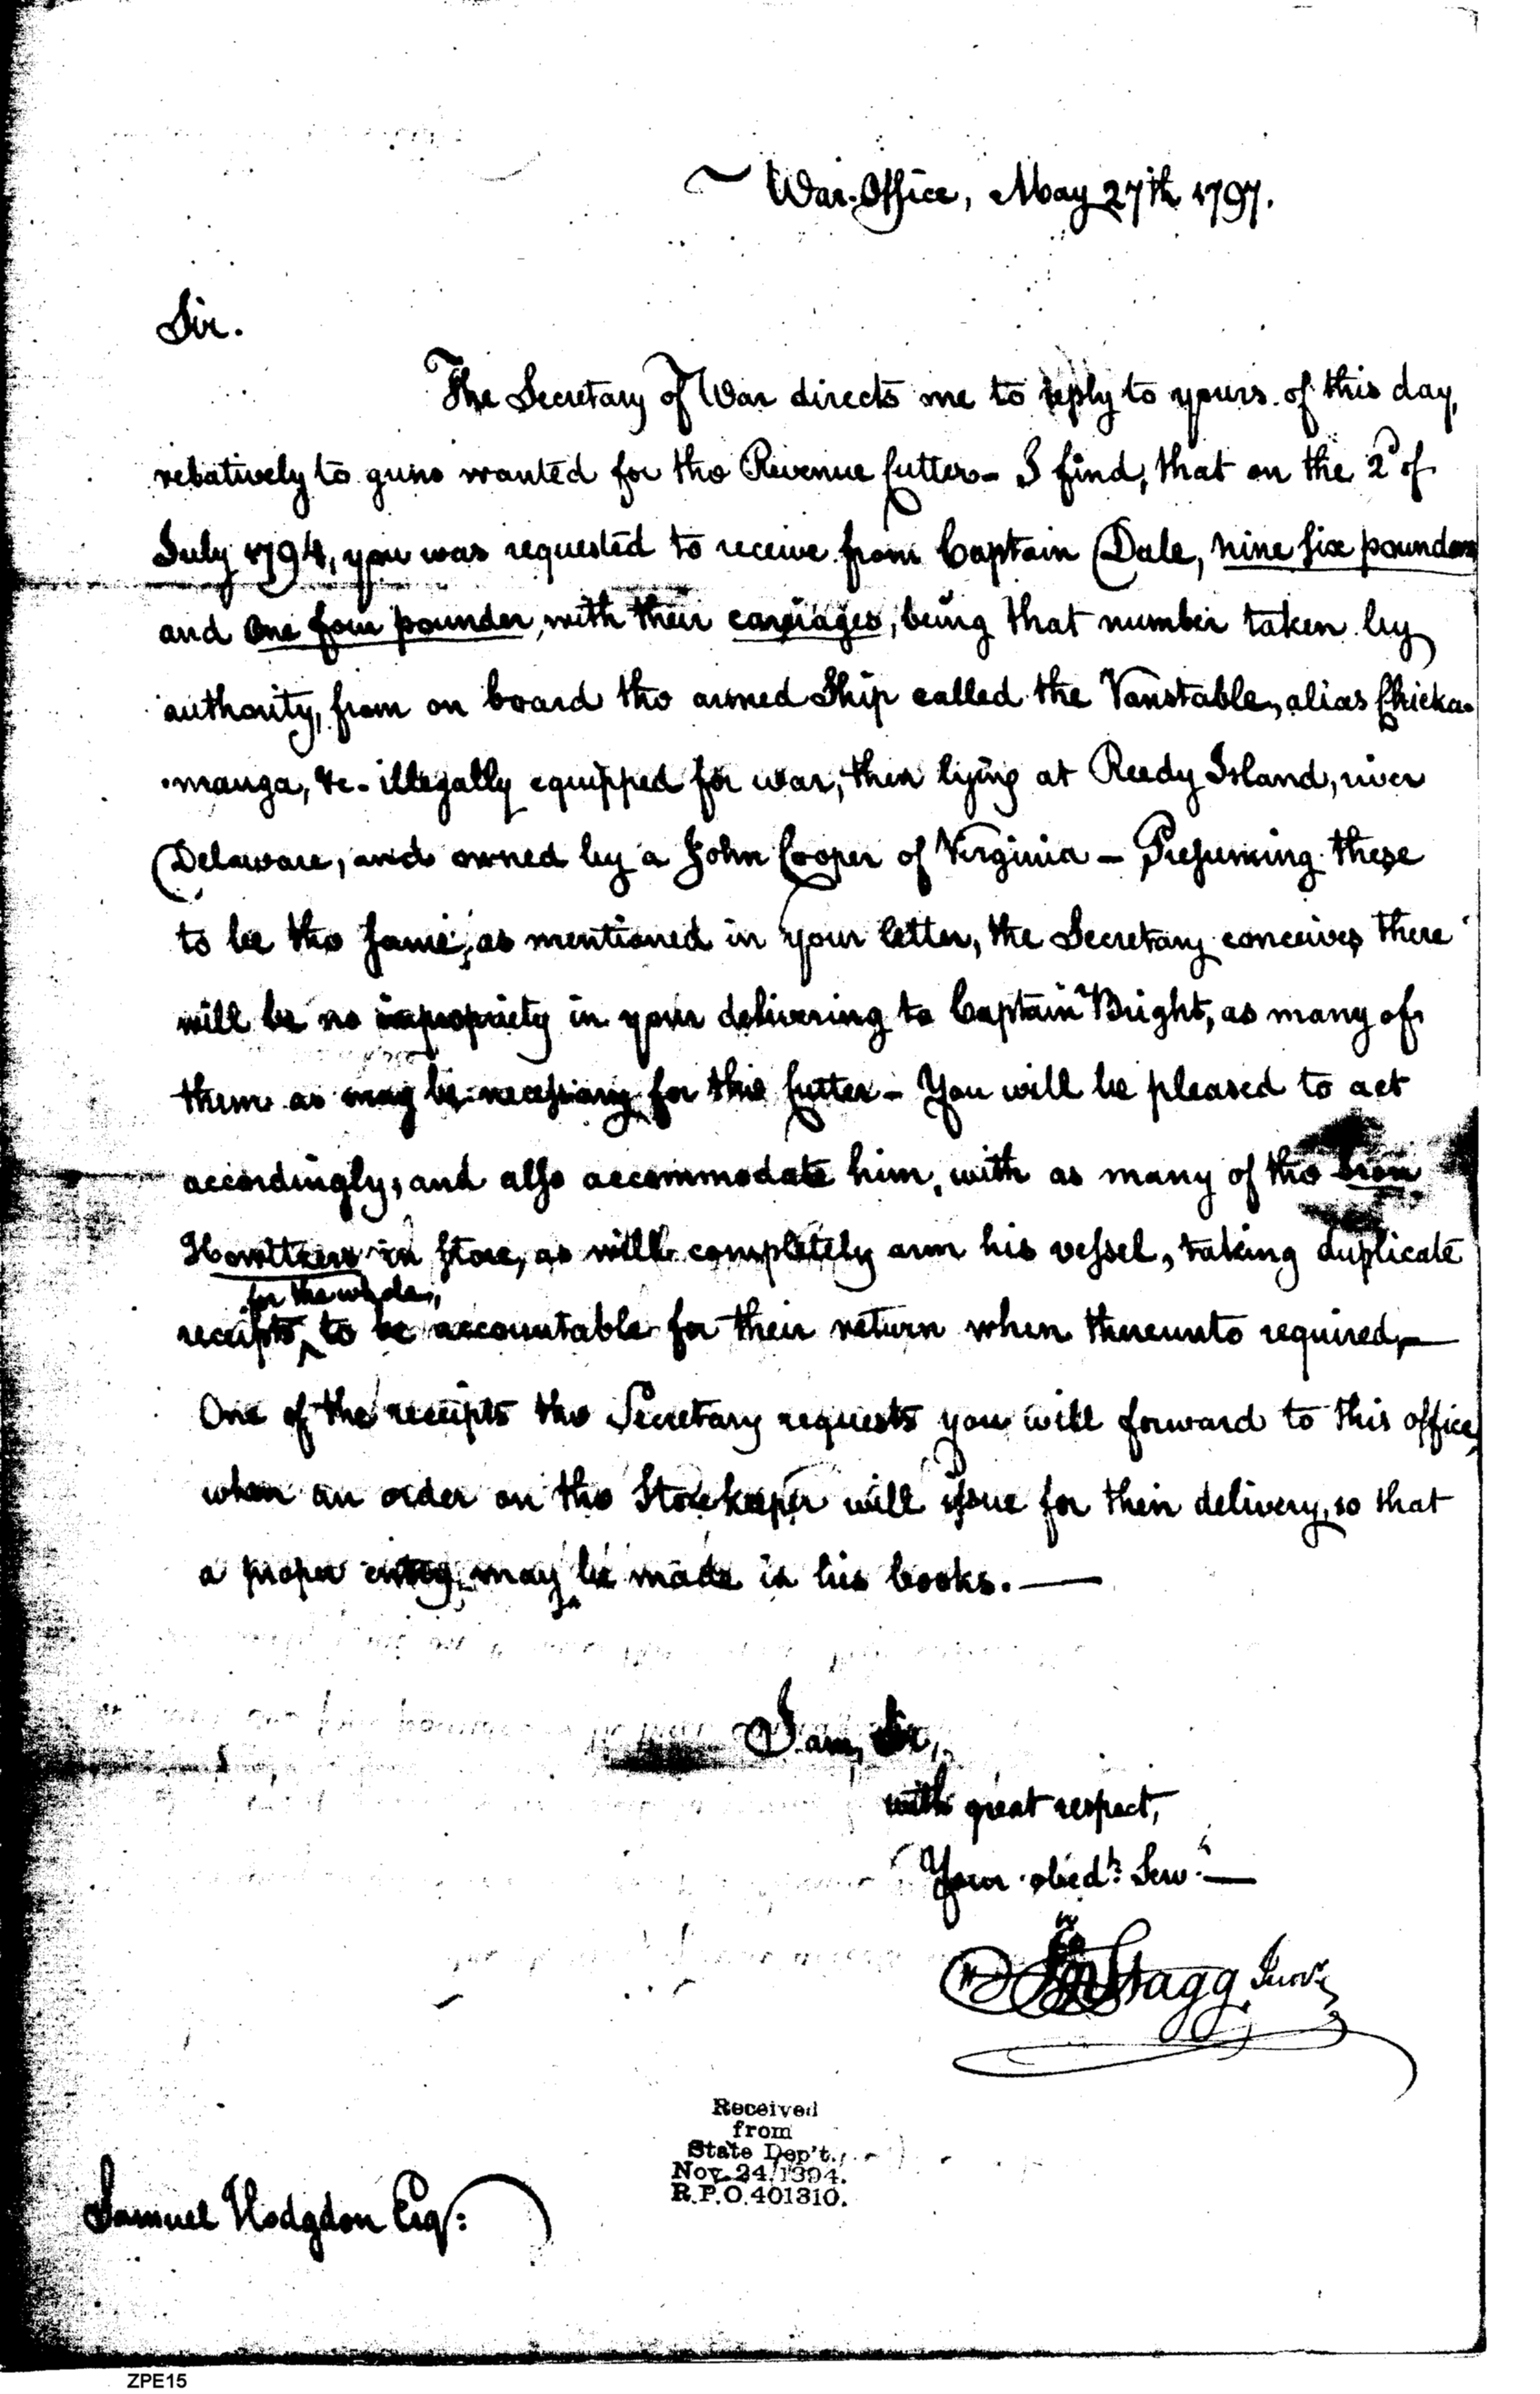 War-Office, May 27th 1797.
Sir.
The Secretary of War directs me to reply to yours of this day,
relatively to guns wanted for the Revenue Cutter - I find, that on the 2d of
July 1794, you was requested to receive from Captain Dale, nine six pounders
and one four pounder, with their carriages, being that number taken by
authority, from on board the armed Ship called the Vanstable, alias Chicka-
-manga, &c - illegally equipped for war, then lying at Reedy Island, river
Delaware, and owned by a John Cooper of Virginia - Presuming these
to be the same, as mentioned in your letter, the Secretary conceives there
will be no impropriety in your delivering to Captain Bright, as many of
them as may be necessary for this Cutter - You will be pleased to act
accordingly, and also accommodate him, with as many of the Iron
Howitzers in store, as will completely arm his vessel, taking duplicate
for the whole,
receipts, to be accountable for their return when thereunto required, —
One of the receipts the Secretary requests you will forward to this office,
when an order on the Storekeeper will issue for their delivery, so that
a proper entry may be made in his books. —
I am, Sir,
with great respect,
Your obedt. Servt. —
Jn Stagg Junr.
Received
from
State Dep't.,
Nov. 24/1894.
R.P.O. 401310.
Samuel Hodgdon Esq:
ZPE15